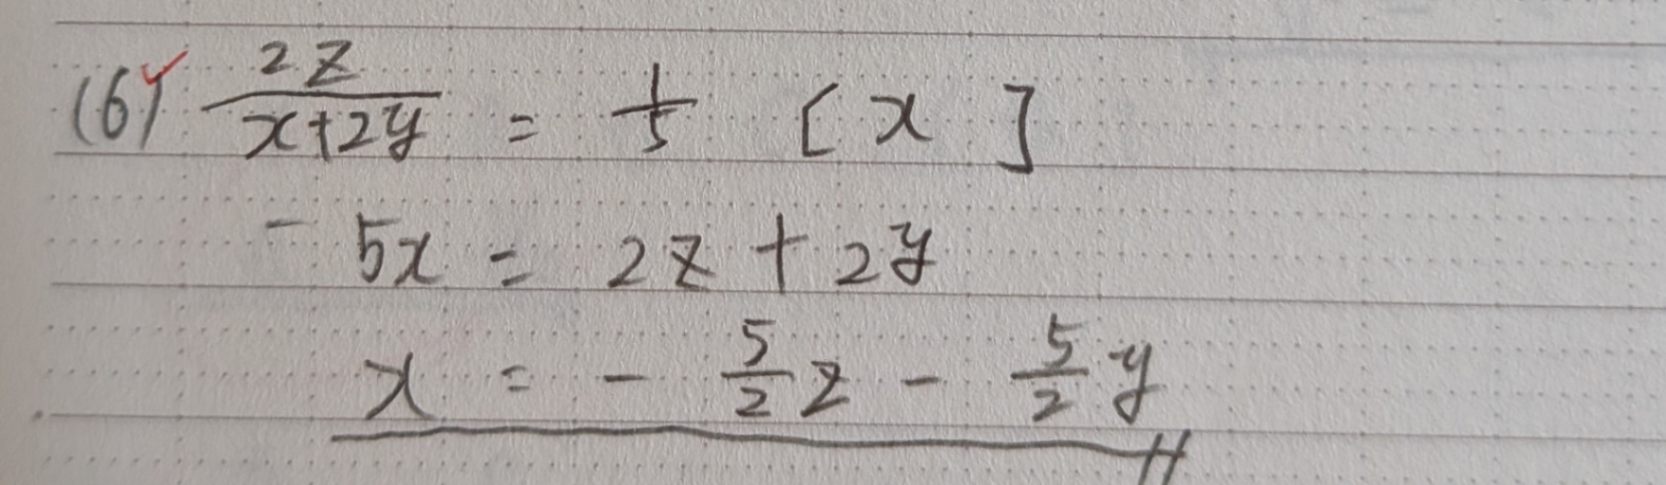 (6) 2z/(x+2y) = 1/5 [x]
-5x = 2z + 2y
x = - 5/2 z - 5/2 y